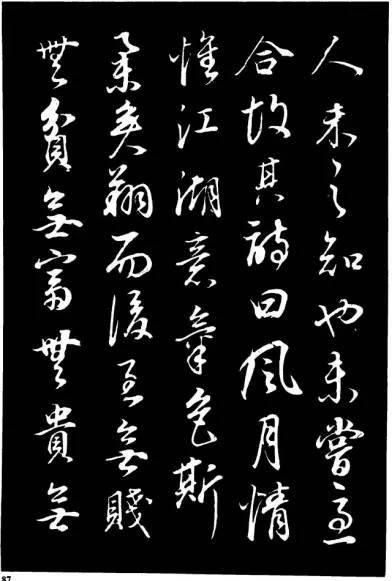 人未之知也未嘗
合故其詩曰風月情
懷江湖意氣色斯
舉矣翔而後至無賤
無貧無富無貴無
87